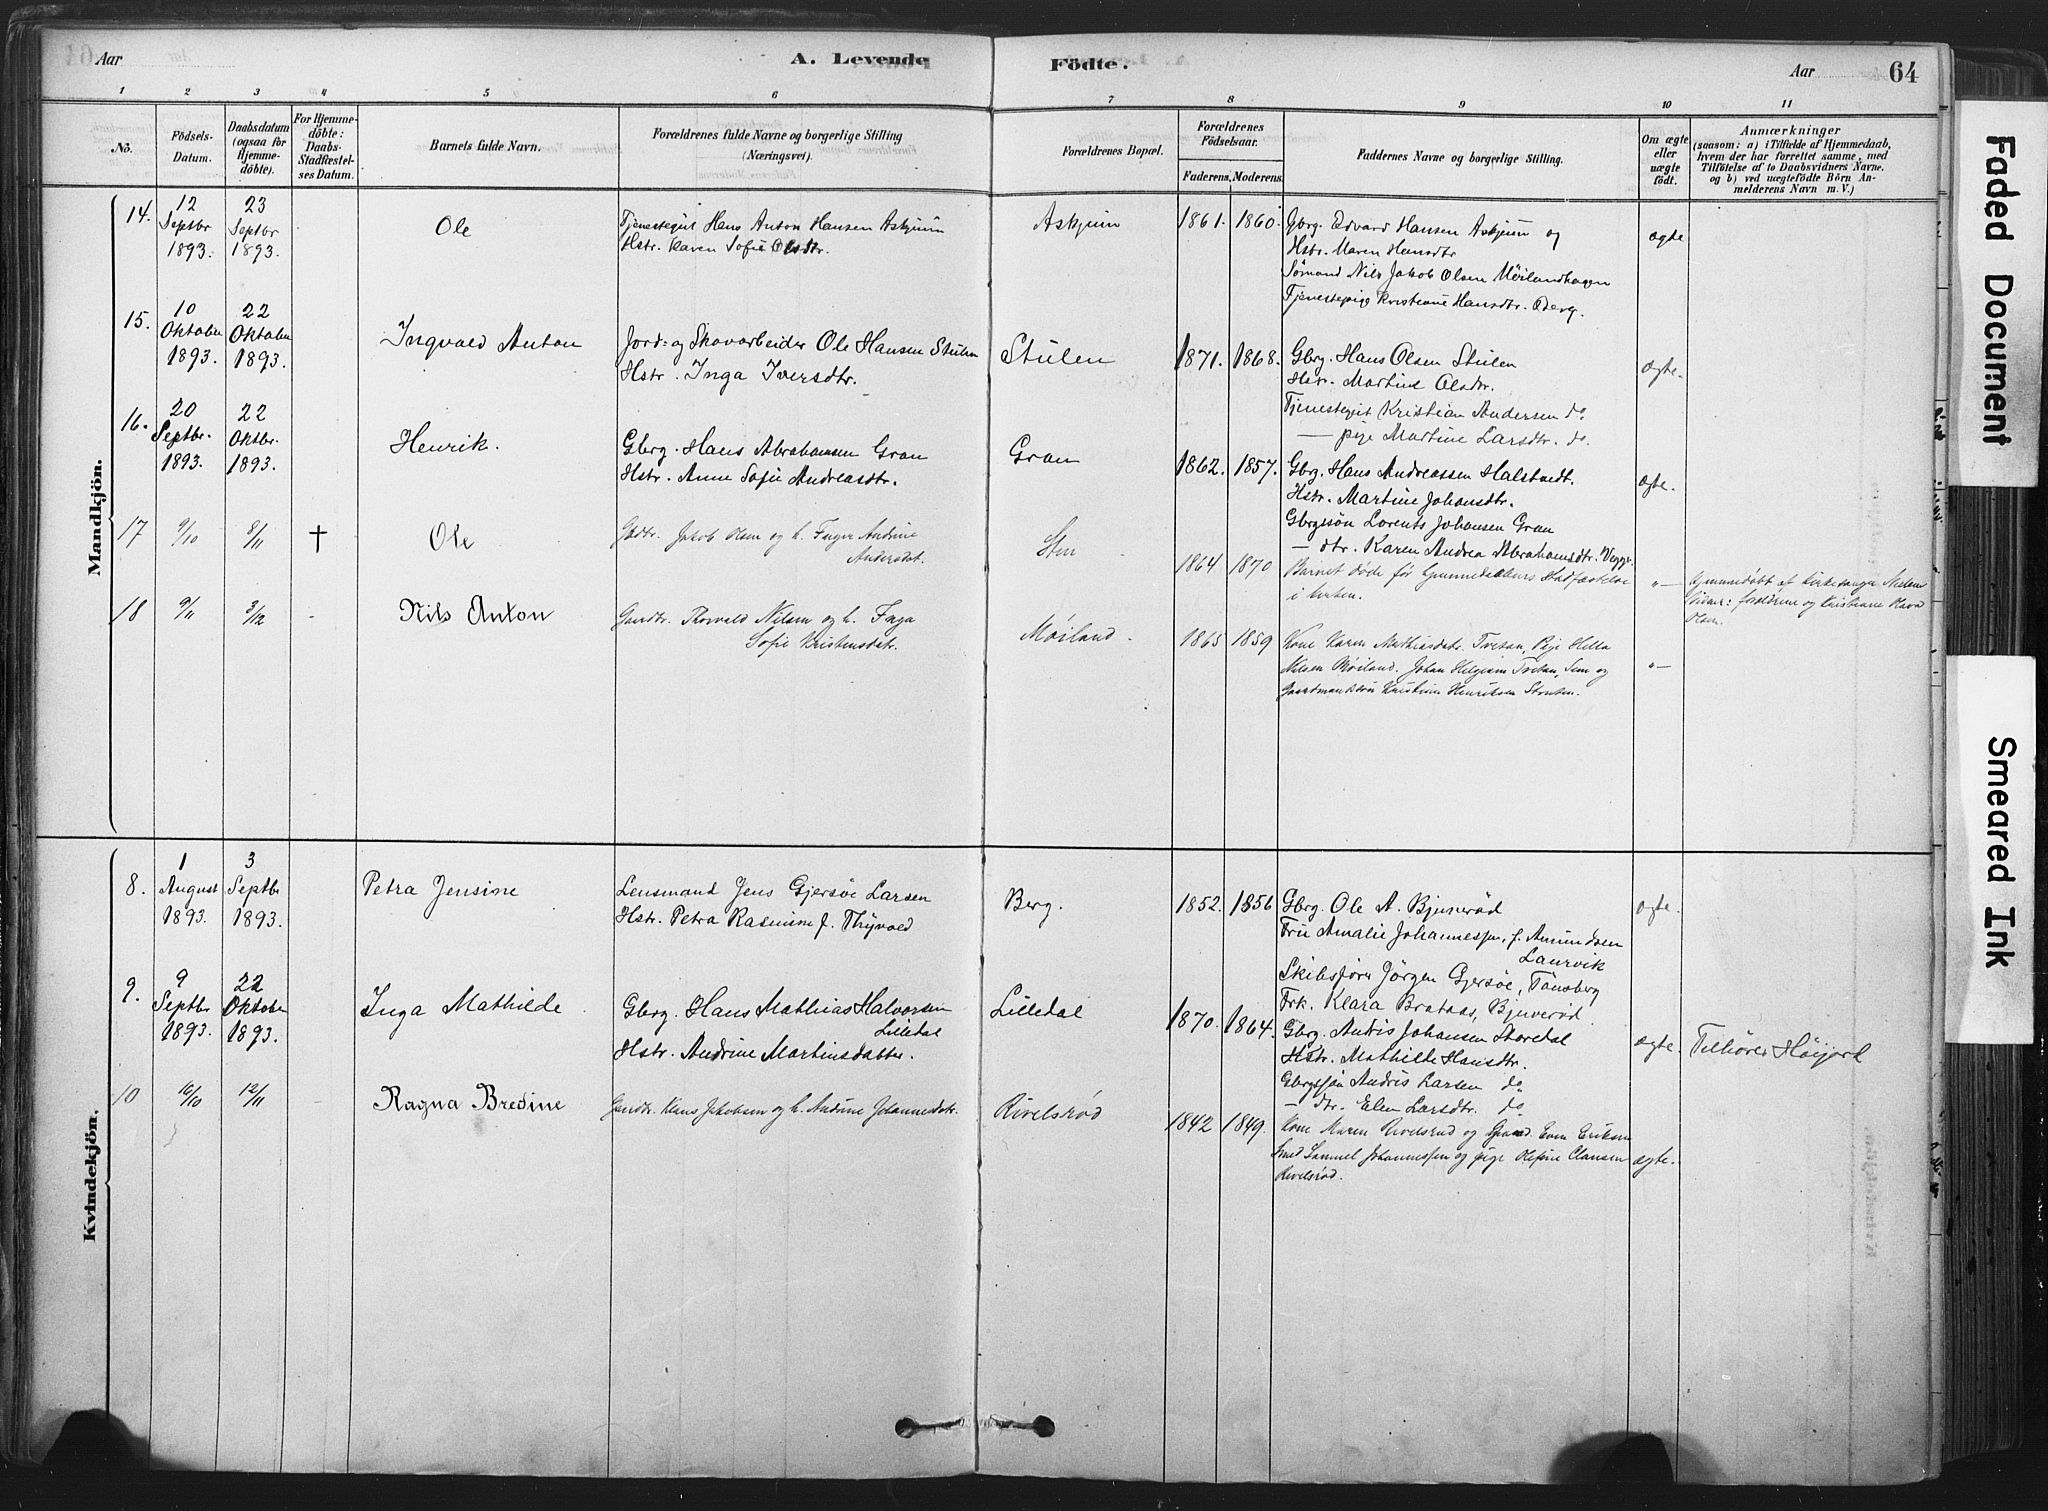 Aar
A. Levende
Födte.
Aar
64
1 2 3 4 5 6 7 8 9 10 11
No.
Födsels-
Datum.
Daabsdatum
(ogsaa for
Hjemme-
döbte).
For Hjemme-
döbte:
Daabs-
Stadfæstel-
ses Datum.
Barnets fulde Navn.
Forældrenes fulde Navne og borgerlige Stilling
(Næringsvei).
Forældrenes Bopæl.
Forældrenes
Födselsaar.
Faderens. Moderens.
Faddernes Navne og borgerlige Stilling.
Om ægte
eller
uægte
födt.
Anmærkninger
(saasom: a) i Tilfælde af Hjemmedaab,
hvem der har forrettet samme, med
Tilföielse af to Daabsvidners Navne.
og b) ved uægtefödte Börn An-
melderens Navn m. V.)
Mandkjön.
14.
12
Septbr
1893.
23
Septbr
1893.
Ole
Tjenestegut Hans Anton Hansen Askjum
Hstr. Karen Sofie Olsdtr.
Askjum
1861. 1860.
Gbrg. Edvard Hansen Askjum og
Hstr. Maren Hansdtr
Sømand Nils Jakob Olsen Möilandhagen
Tjenestepige Kristiane Hansdtr. Oberg.
ægte
15.
10
Oktober
1893.
22
Oktober
1893.
Ingvald Anton
Jord- og Skovarbeider Ole Hansen Stulen
Hstr. Inga Iversdtr.
Stulen
1871. 1868.
Gbrg. Hans Olsen Stulen
Hstr. Martine Olsdtr.
Tjenestegut Kristian Andersen do
— pige Martine Larsdtr. do.
ægte.
16.
20
Septbr.
1893.
22
Oktbr.
1893.
Henrik.
Gbrg. Hans Abrahamsen Gran
Hstr. Anne Sofie Andreasdtr.
Gran
1862. 1857.
Gbrg. Hans Andreassen Halstvedt.
Hstr. Martine Johansdtr.
Gbrgssön Lorents Johansen Gran
— dtr. Karen Andrea Abrahamsdtr.
ægte.
17
9/10
8/11
†
Ole
Jakob Olsen og h. Inger Andrine
Andersdat.
Sten
1864 1870
Barnet døde før hjemmedaabens Stadfæstelse
i kirken.
"—
Hjemmedøbt af Kirkesanger Nielsen
forældrene og Kristiane
Olsen.
18
9/11
3/12
-
Nils Anton
Gaardbr. Thorvald Nilsen og h. Inga
Sofie Kristensdatr.
Möiland.
1865 1859
Kone Karen Mathiasdatr. Tvetan, Pige Hella
Nilsen Möiland. Johan Helgesen Tvetan, Sem og
Gaardmandssön Kristian Henriksen
"—
Kvindekjön.
8.
1
August
1893.
3
Septbr
1893.
Petra Jensine
Lensmand Jens Gjersøe Larsen
Hstr. Petra Rasmine f. Thyvold
Berg.
1852. 1856
Gbrg. Ole A. Bjuverød
Fru Amalie Johannessen, f. Amundsen
Laurvik
Skibsfører Jörgen Gjersøe, Tönsberg
Frk. Klara Brataas, Bjuveröd.
ægte.
9.
9
Septbr
1893.
22
Oktober
1893.
Inga Mathilde
Gbrg. Hans Mathias Halvorsen
Lilledal
Hstr. Andrine Martinsdatter.
Lilledal
1870. 1864.
Gbrg. Andris Johansen Storedal
Hstr. Mathilde Hansdtr.
Gbrgssön Andris Larsen do
— dtr. Elen Larsdtr. do
ægte.
Tilhörer Höijord
10
16/10
12/11
Ragna Bredine
Gaardbr. Hans Jakobsen og h. Andrine Johannesdatr.
Rivelsröd
1842 1849.
Kone Maren Rivelsrud og Gaardbr. Even Eriksen
Smed Samuel Johannessen og pige Olefine Clausen
Rivelsröd.
ægte.
Faded Document
Smeared Ink